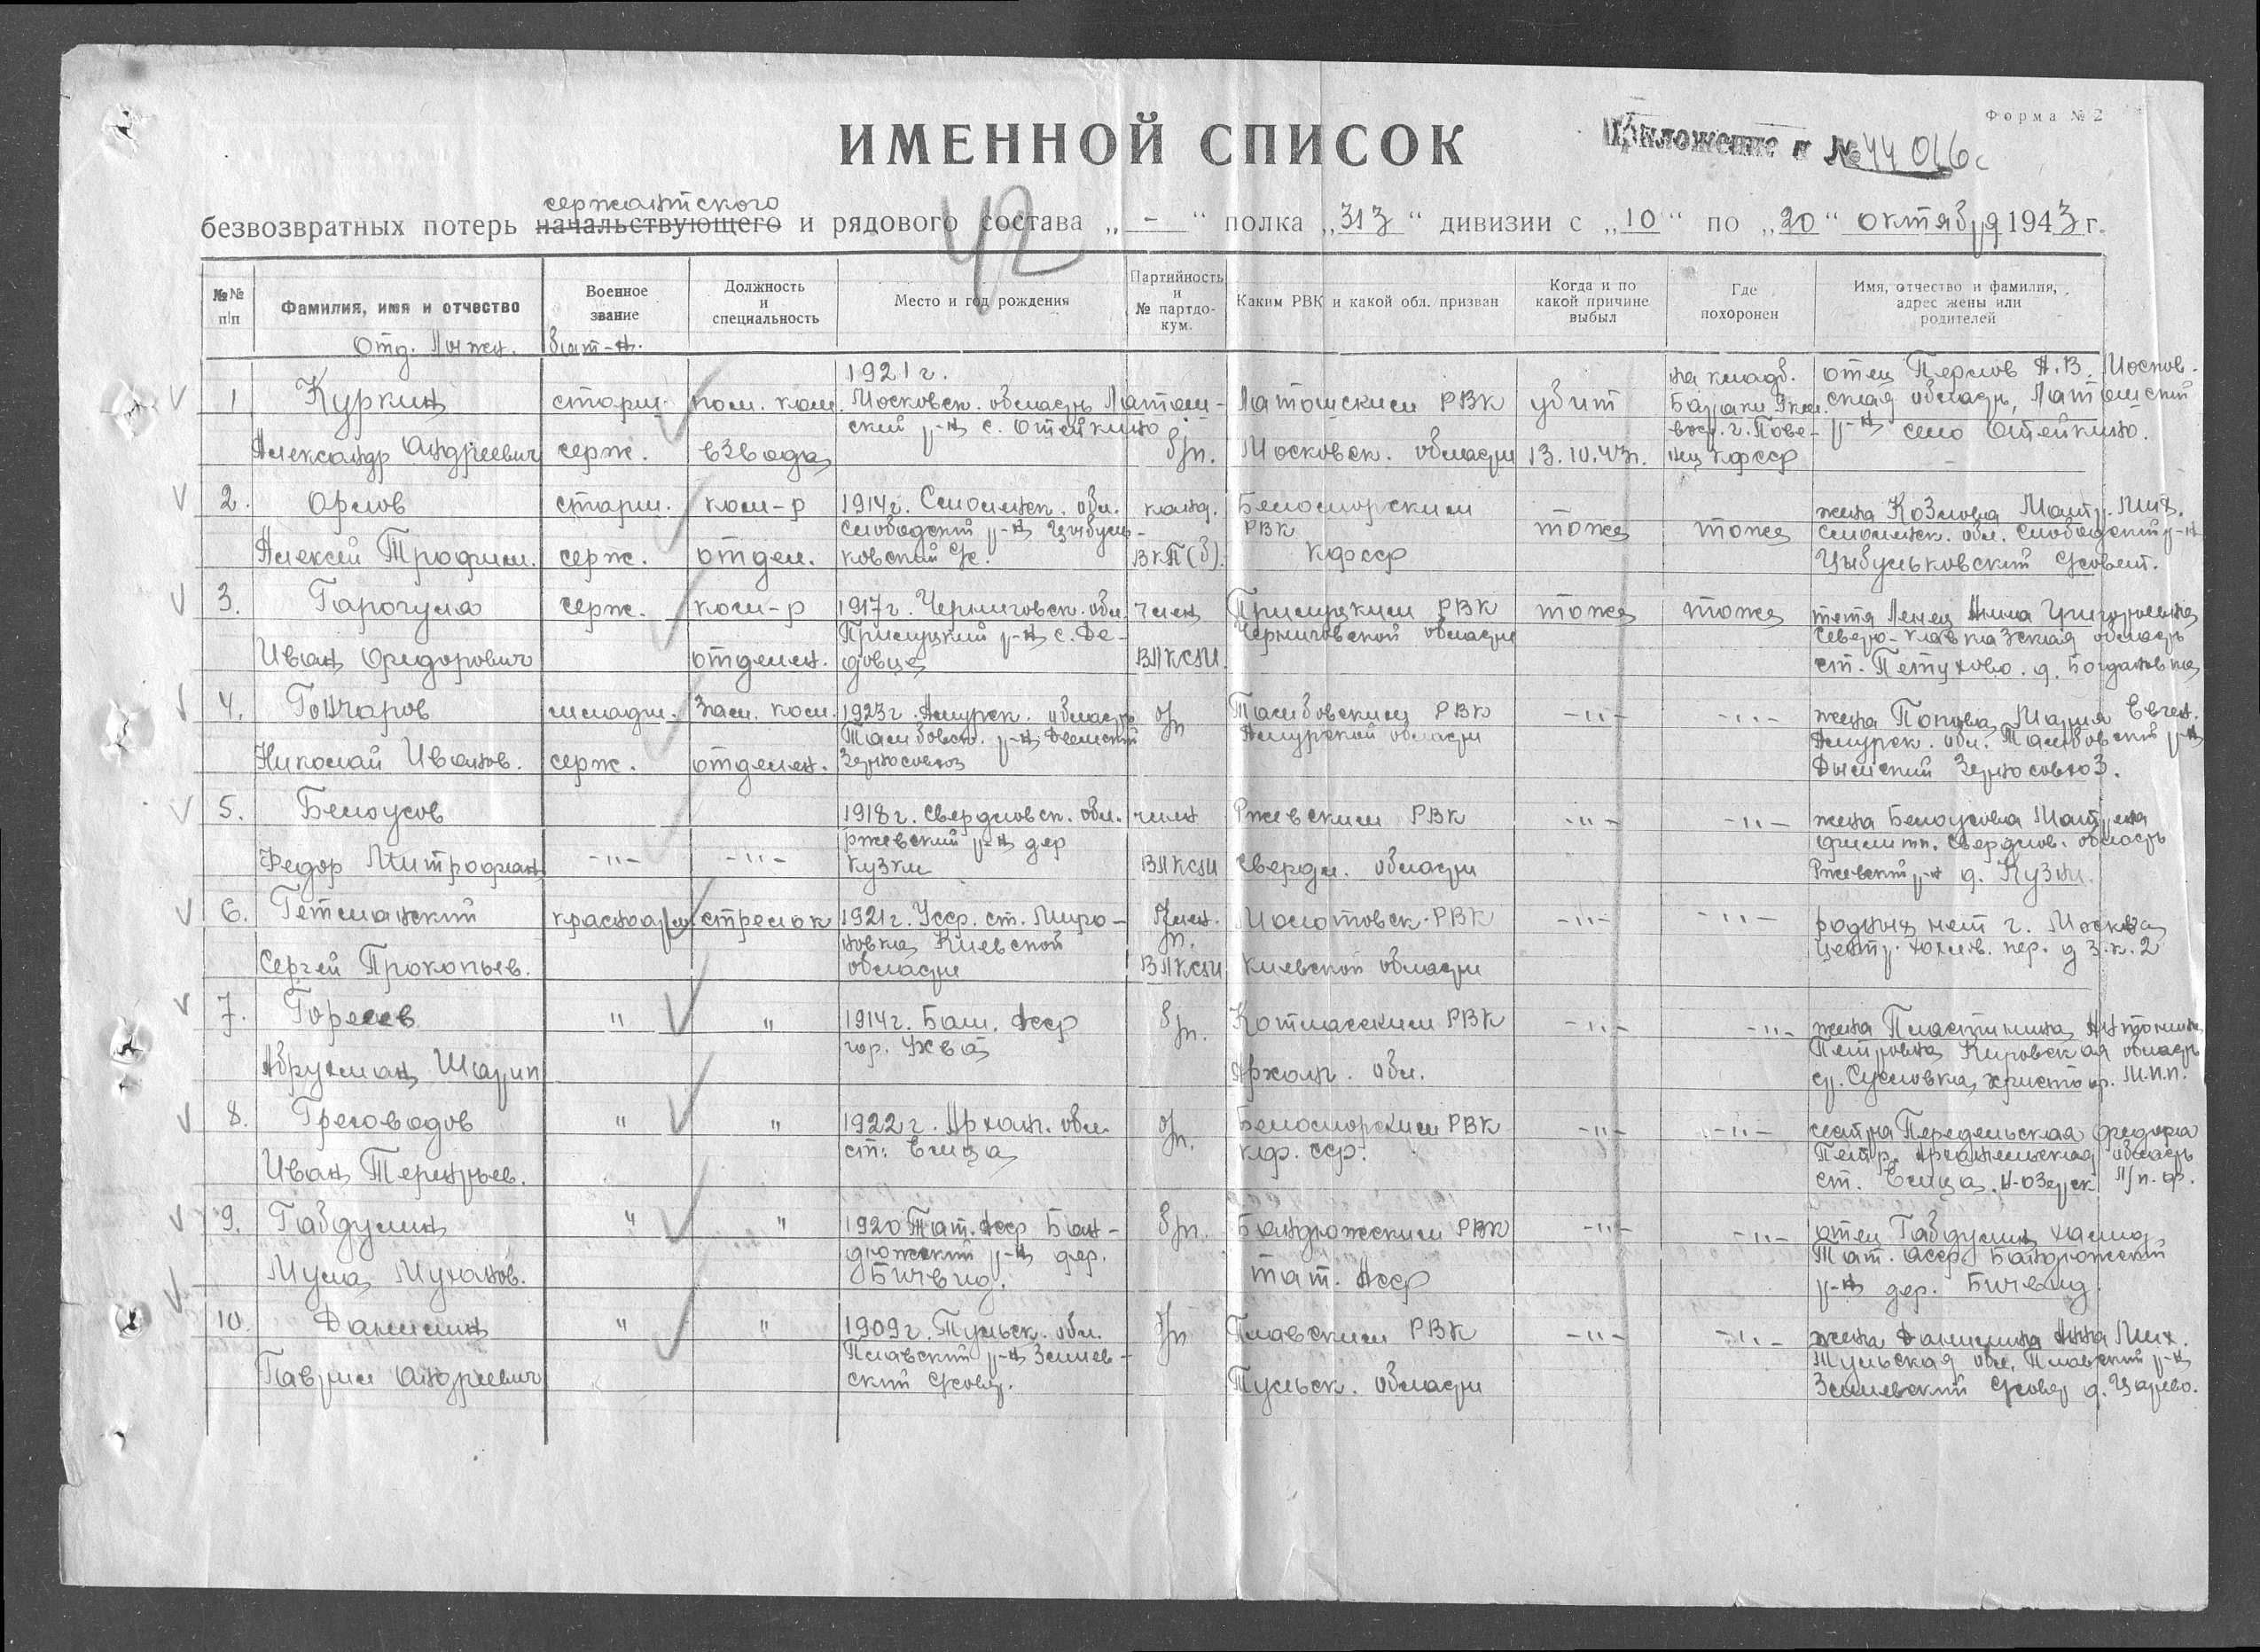 Форма № 2
ИМЕННОЙ СПИСОК
Приложение к № 44016с
сержантского
безвозвратных потерь начальствующего и рядового состава „ - “ полка „313“ дивизии с „10“ по „20“ октября 1943 г.
42
№№ п/п | Фамилия, имя и отчество | Военное звание | Должность и специальность | Место и год рождения | Партийность и № партдокум. | Каким РВК и какой обл. призван | Когда и по какой причине выбыл | Где похоронен | Имя, отчество и фамилия, адрес жены или родителей
Отд. Лыжн. бат-н.
1 Куркин Александр Андреевич | старш. серж. | пом. ком. взвода | 1921 г. Московск. область Латошский р-н с. Отейкино | б/п. | Латошским РВК Московск. области | убит 13.10.43г. | на кладб. Бараки 9км. вост. г. Повенец КФССР | отец Перлов А.В. Московская область, Латошский р-н село Отейкино.
2. Орлов Алексей Трофим. | старш. серж. | ком-р отдел. | 1914г. Смоленск. обл. Слободский р-н Цыбульковский Ус. | канд. ВКП(б). | Беломорским РВК КФССР | тоже | тоже | жена Козлова Матр. Мих. Смоленск. обл. Слободский р-н Цыбульковский с/совет.
3. Гарогуля Иван Федорович | серж. | ком-р отделен. | 1917г. Черниговск. обл. Прилуцкий р-н с. Дедовцы | член ВЛКСМ. | Прилуцким РВК Черниговской области | тоже | тоже | тетя Ленец Анна Григорьевна Северо-Кавказская область ст. Петухово. д. Богдановка
4. Гончаров Николай Иванов. | младш. серж. | Зам. ком. отделен. | 1923г. Амурск. область Тамбовск. р-н Дымский Зерносовхоз | б/п | Тамбовским РВК Амурской области | -"- | -"- | жена Попова Мария Евген. Амурск. обл. Тамбовский р-н Дымский Зерносовхоз.
5. Белоусов Федор Митрофан | -"- | -"- | 1918г. Свердловск. обл. Ржевский р-н дер Кузки | член ВЛКСМ | Ржевским РВК Свердл. области | -"- | -"- | жена Белоусова Матрена Филипп. Свердлов. область Ржевский р-н д. Кузки.
6. Гетманский Сергей Прокопьев. | красноарм. | стрелок | 1921г. УССР. ст. Мироновка Киевской области | член ВЛКСМ | Молотовск. РВК Киевской области | -"- | -"- | родных нет г. Москва Центр. Хохлов. пер. д 3. к. 2
7. Гореев Абрухман Шарип | " | " | 1914г. Баш. АССР гор. Ухва | б/п. | Котласским РВК Архольг. обл. | -"- | -"- | жена Пластинина Антонина Петровна Кировская область ст. Сусловка, христофор. М.п.п.
8. Греховодов Иван Терентьев. | " | " | 1922г. Архонг. обл. ст. Емца | б/п. | Беломорским РВК кф. сср. | -"- | -"- | сестра Передельская Федора Петр. Архангельская область ст. Емца. Н-Озерск П/п. ф.
9. Габдулин Муса Муханов. | " | " | 1920 Тат. АССР Бондюжский р-н дер. Бичвид. | б/п. | Бондюжским РВК Тат. АССР | -"- | -"- | отец Габдулин Ханна Тат. АССР Бондюжский р-н дер. Бичвид.
10. Данилин Гаврил Андреевич | " | " | 1909г. Тульск. обл. Плавский р-н Змиевский с/совет. | б/п | Плавским РВК Тульск. области | -"- | -"- | жена Данилина Анна Мих. Тульская обл. Плавский р-н Змиевский с/совет д. Царево.